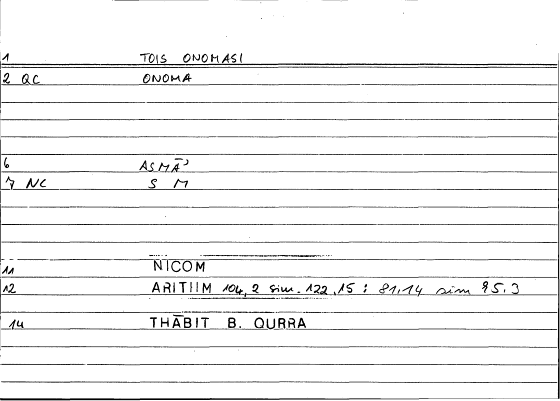 1 TOIS ONOMASI
2 QC ONOMA
6 ASMĀʾ
7 NC S M
11 NICOM
12 ARITIIM 104,2 sim. 122,15 : 81,14 sim 95.3
14 THĀBIT B. QURRA